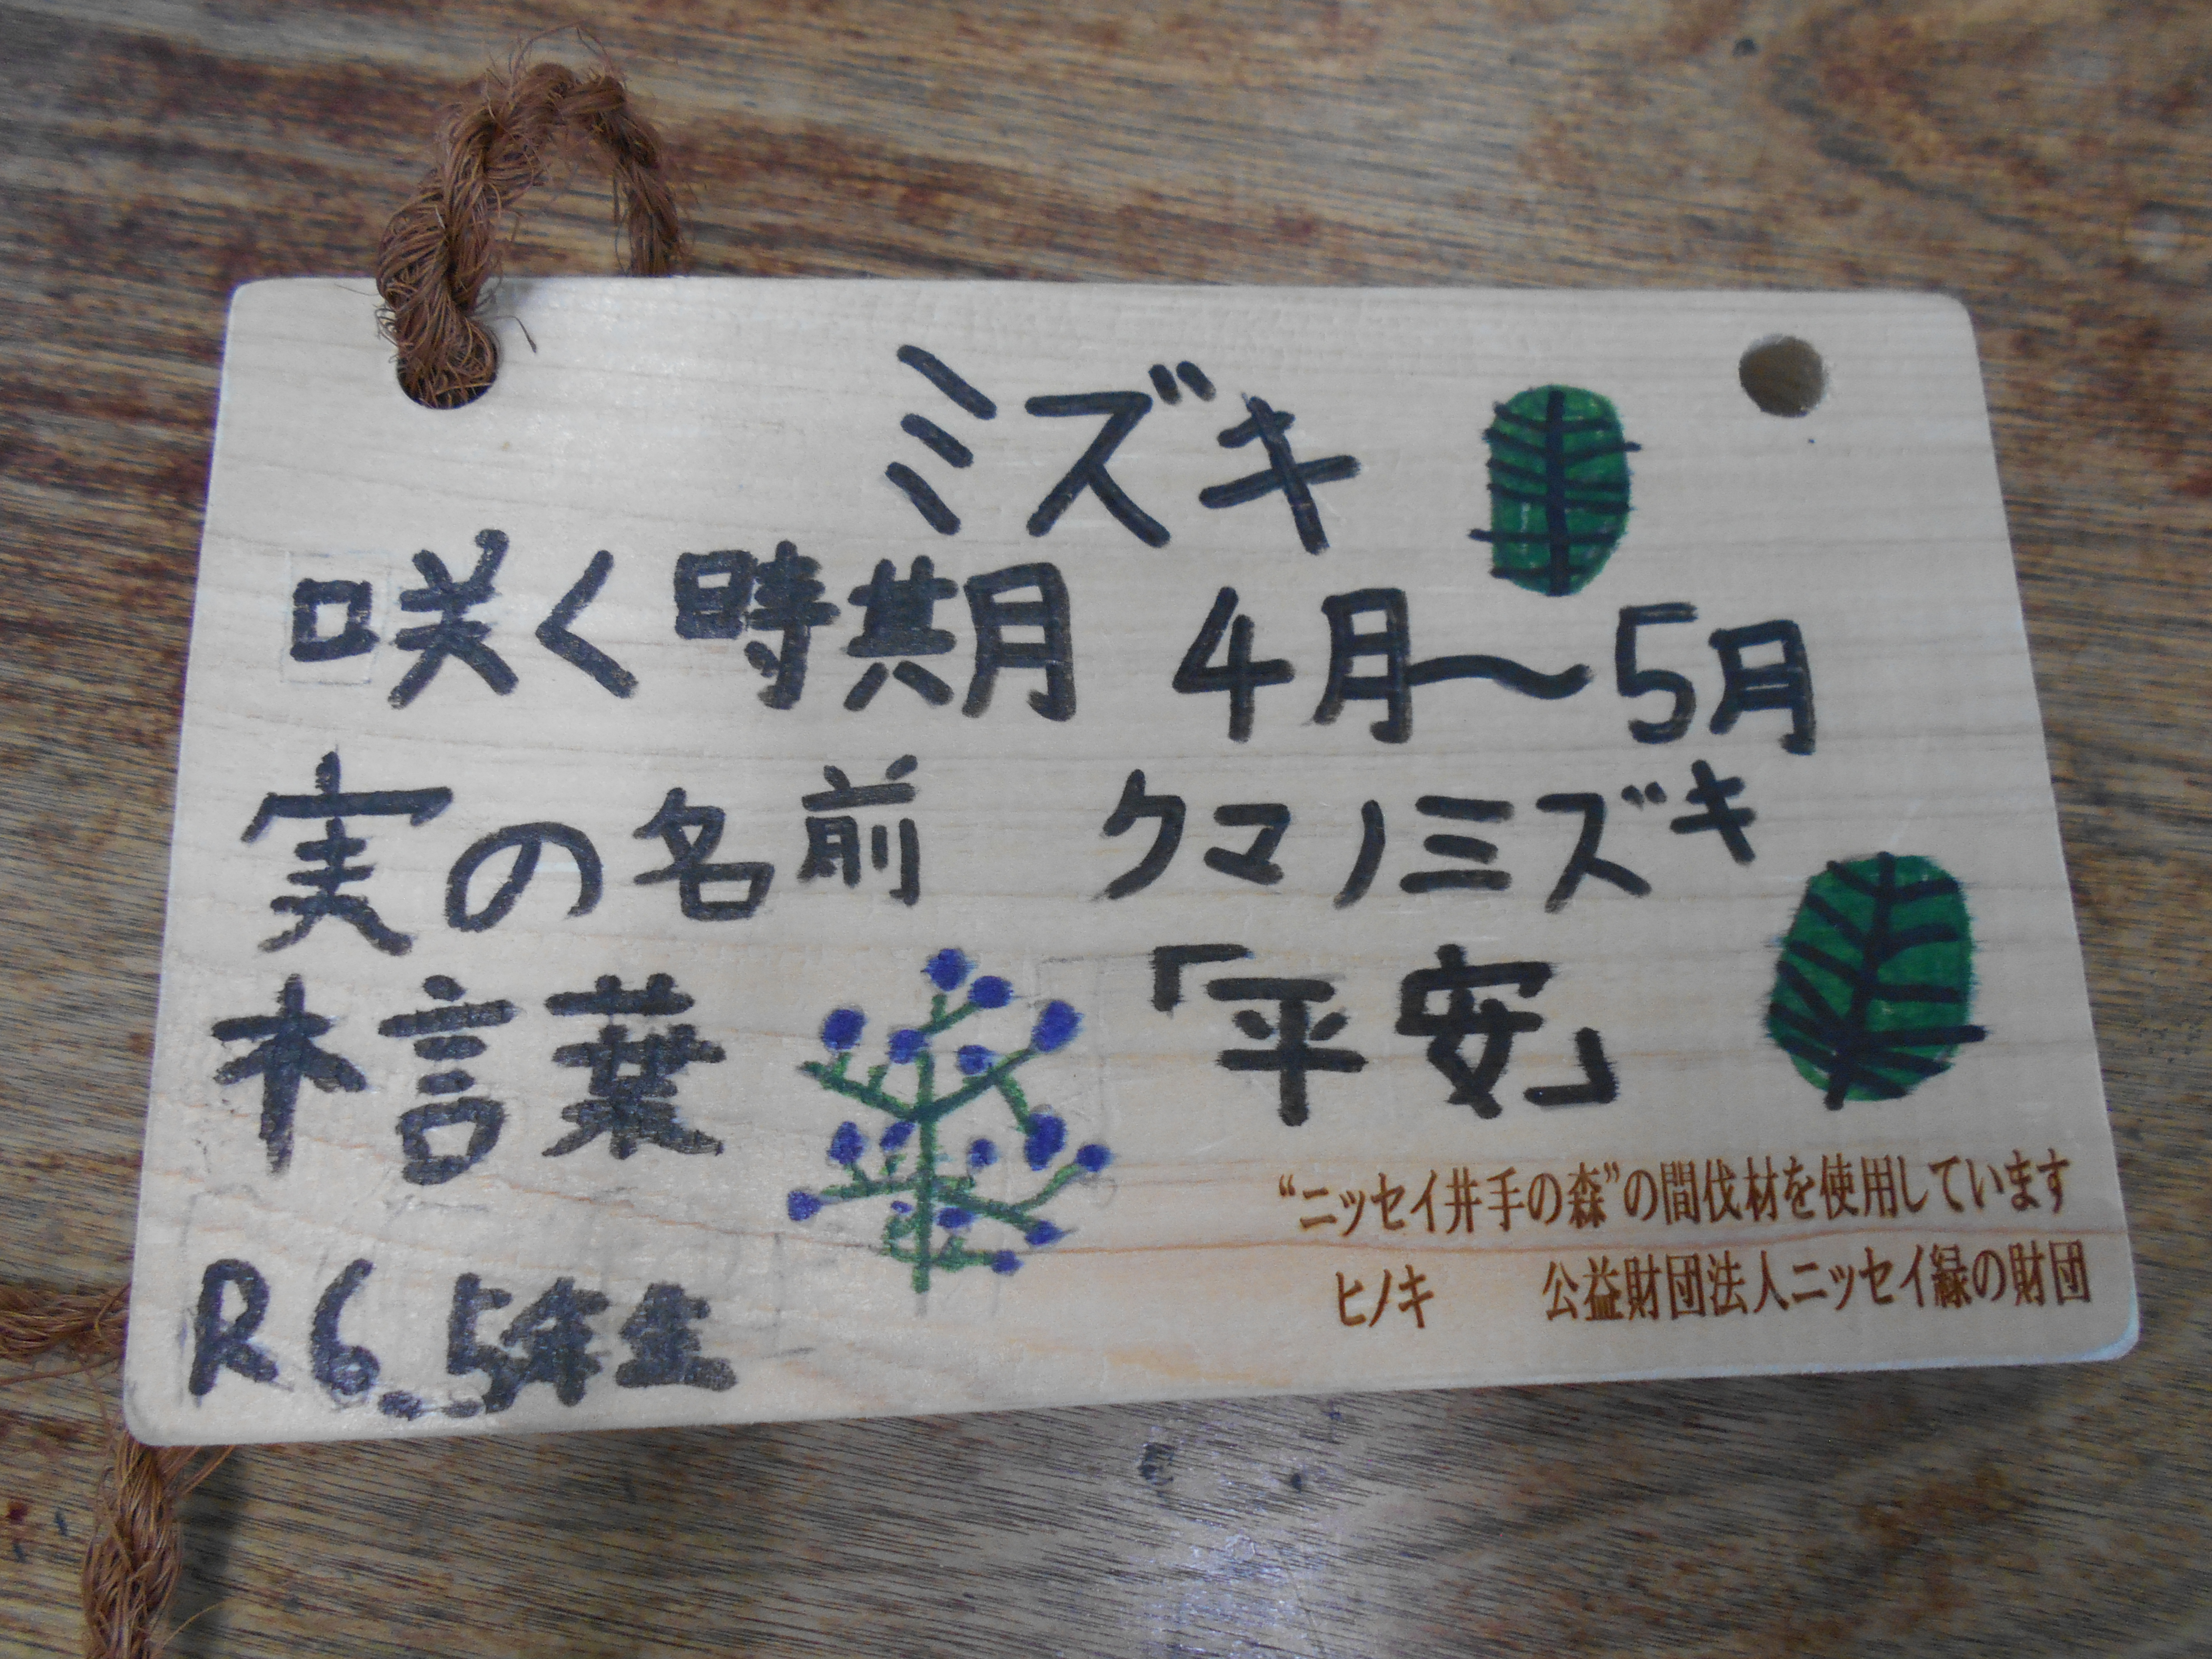 ミズキ
咲く時期 4月〜5月
実の名前 クマノミズキ
木言葉 「平安」
R6 5年生
“ニッセイ井手の森”の間伐材を使用しています
ヒノキ 公益財団法人ニッセイ緑の財団